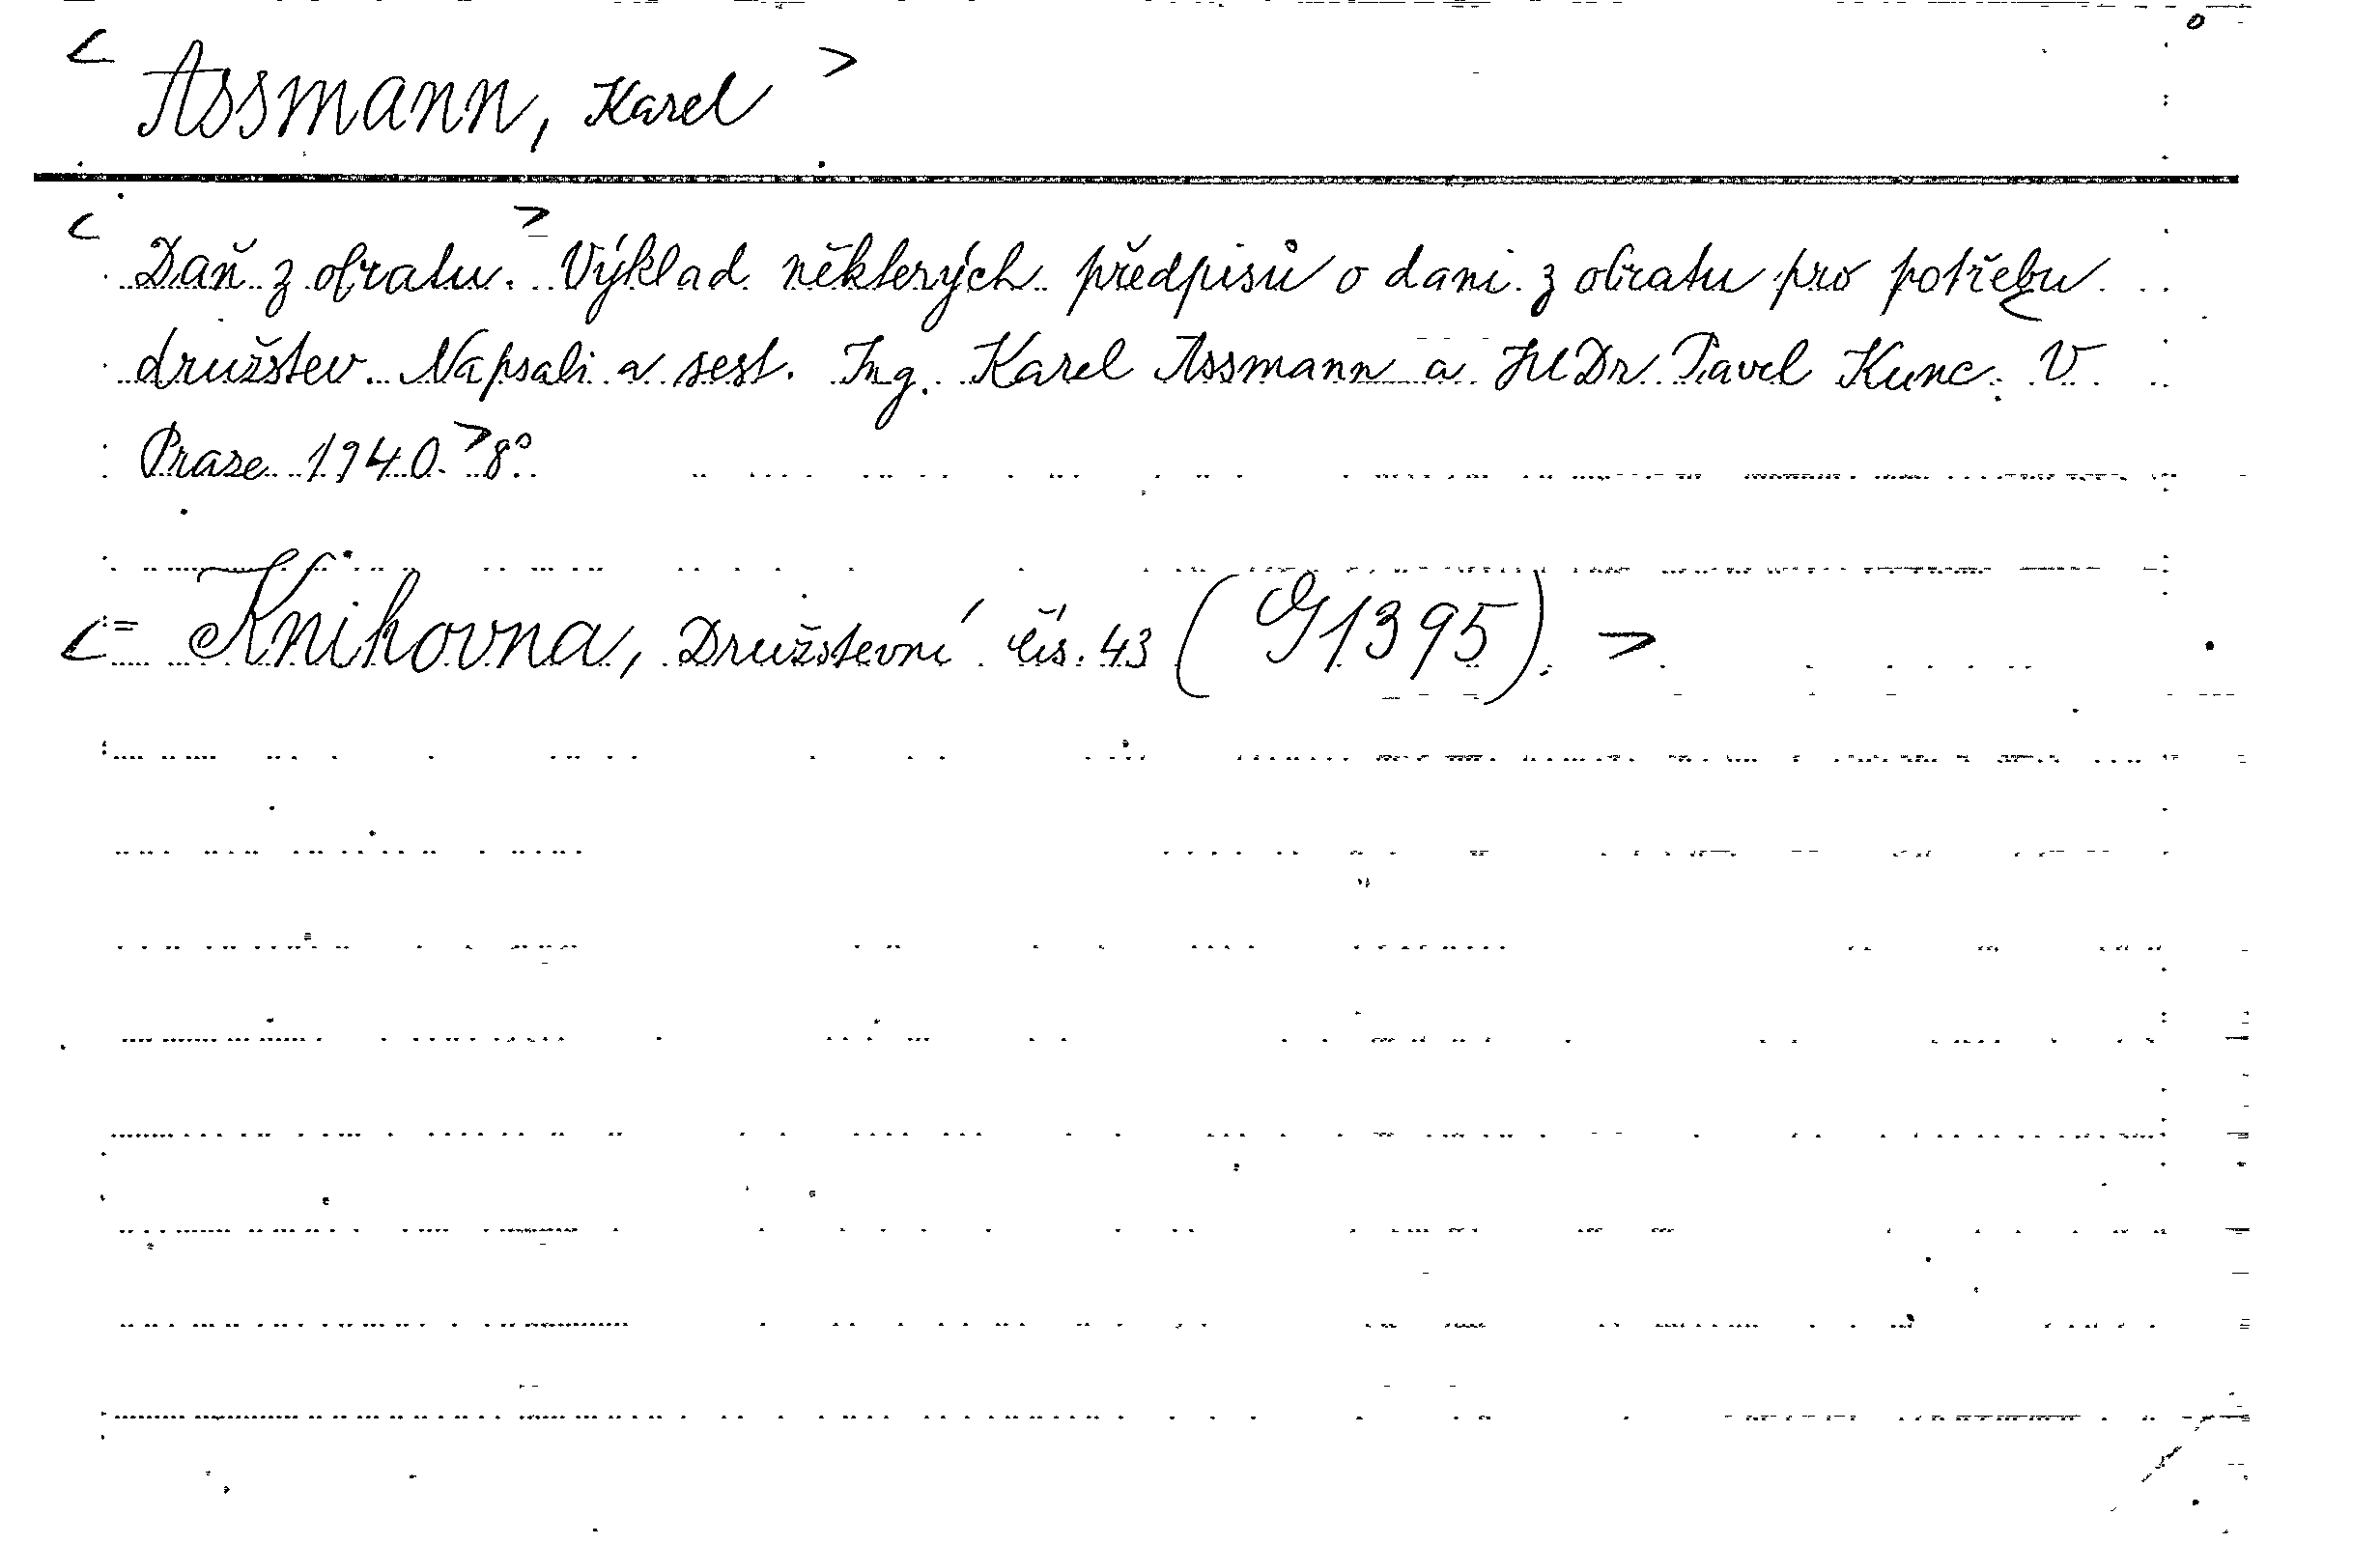 < Assmann, Karel >
< Daň z obratu. > Výklad některých předpisů o dani z obratu pro potřebu
družstev. Napsali a sest. Ing. Karel Assmann a JUDr. Pavel Kunc. V
Praze 1940. > 8°.
< = Knihovna, Družstevní čís. 43 (G 1395). >